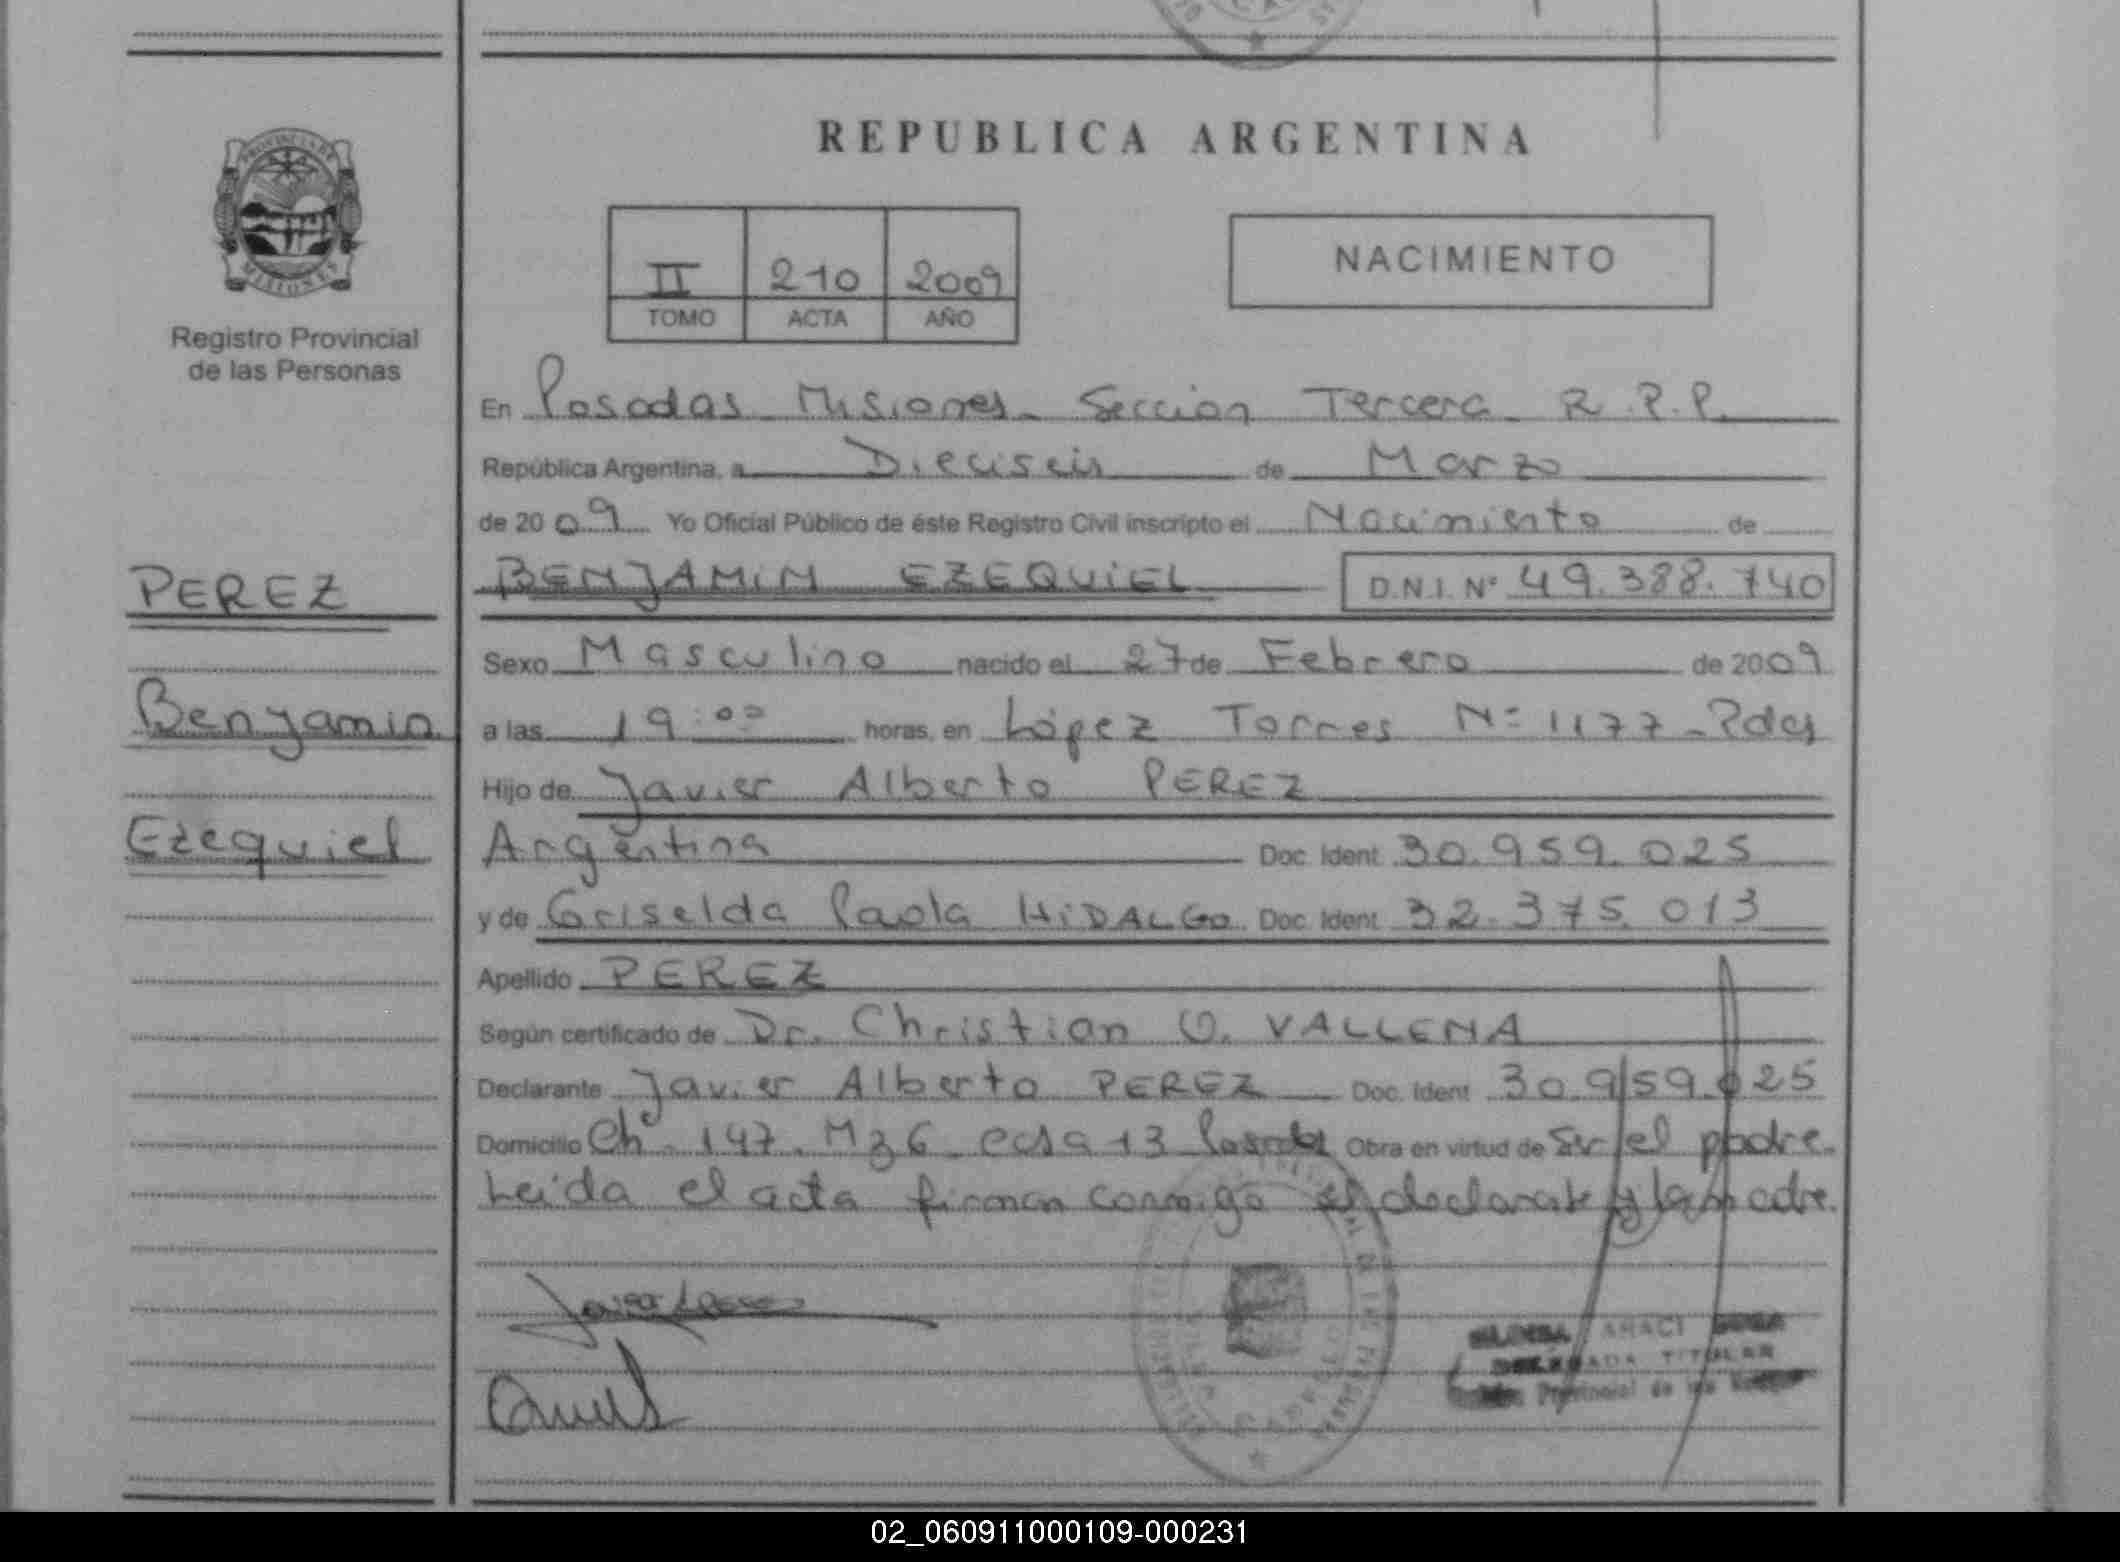 REPUBLICA ARGENTINA
PROVINCIA DE
MISIONES
Registro Provincial
de las Personas
II 210 2009
TOMO ACTA AÑO
NACIMIENTO
En Posadas Misiones - Sección Tercera - R.P.P.
República Argentina, a Dieciseis de Marzo
de 2009 Yo Oficial Público de éste Registro Civil inscripto el Nacimiento de
PEREZ
Benjamin
Ezequiel
BENJAMIN EZEQUIEL D.N.I. Nº 49.388.740
Sexo Masculino nacido el 27 de Febrero de 2009
a las 19:00 horas, en López Torres Nº 1177 - Pdas
Hijo de Javier Alberto PEREZ
Argentina Doc. Ident. 30.959.025
y de Griselda Paola HIDALGO Doc. Ident. 32.375.013
Apellido PEREZ
Según certificado de Dr. Christian O. VALLENA
Declarante Javier Alberto PEREZ Doc. Ident. 30.959.025
Domicilio Ch. 147. Mz 6 casa 13 Posadas Obra en virtud de Ser el padre.
Leida el acta firman conmigo el declarante y la madre.
ARACI
DELEGADA TITULAR
Provincial de las
02_060911000109-000231